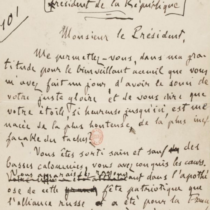 Président de la République
Monsieur le Président,
Me permettez-vous, dans ma gra-
titude pour le bienveillant accueil que vous
m'avez fait un jour, d'avoir le souci de
votre juste gloire et de vous dire que
votre étoile, si heureuse jusqu'ici, est me-
nacée de la plus honteuse, de la plus inef-
façable des taches?
Vous êtes sorti sain et sauf des
basses calomnies, vous avez conquis les cœurs.
dans l'apothé-
ose de fête patriotique que
l'alliance russe a été pour la